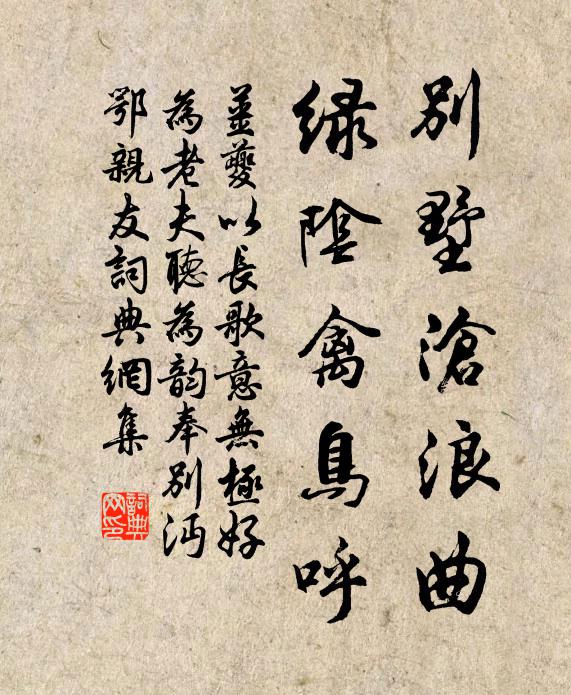 別墅滄浪曲
綠陰禽鳥呼
姜夔以長歌意無極好
為老夫聽為韵奉別沔
鄂親友詞典網集
詞典网印